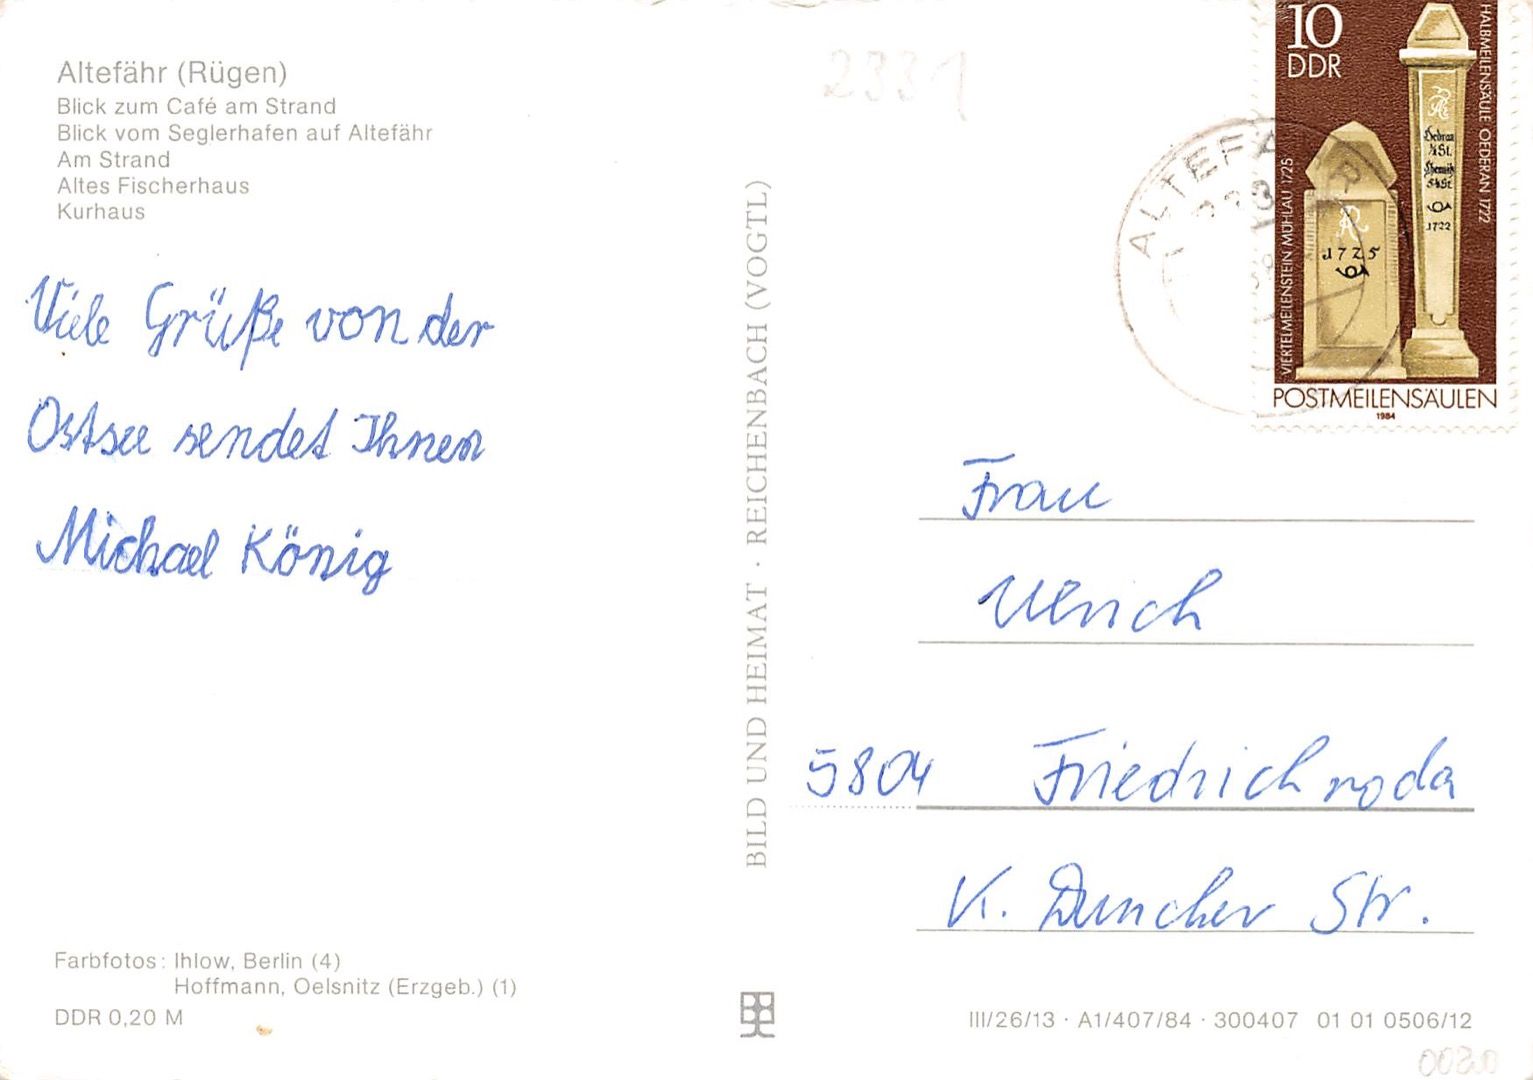 Altefähr (Rügen)
Blick zum Café am Strand
Blick vom Seglerhafen auf Altefähr
Am Strand
Altes Fischerhaus
Kurhaus
Viele Grüße von der
Ostsee sendet Ihnen
Michael König
Farbfotos: Ihlow, Berlin (4)
Hoffmann, Oelsnitz (Erzgeb.) (1)
DDR 0,20 M
BILD UND HEIMAT · REICHENBACH (VOGTL)
2331
ALTEFÄHR
10
DDR
VIERTELMEILENSTEIN MÜHLAU 1725
HALBMEILENSÄULE OEDERAN 1722
AR
1725
AR
Oederan
St.
Chemnitz
St.
1722
POSTMEILENSÄULEN
1984
Frau
Ulrich
5804 Friedrichroda
K. Duncker Str.
III/26/13 · A1/407/84 · 300407 01 01 0506/12